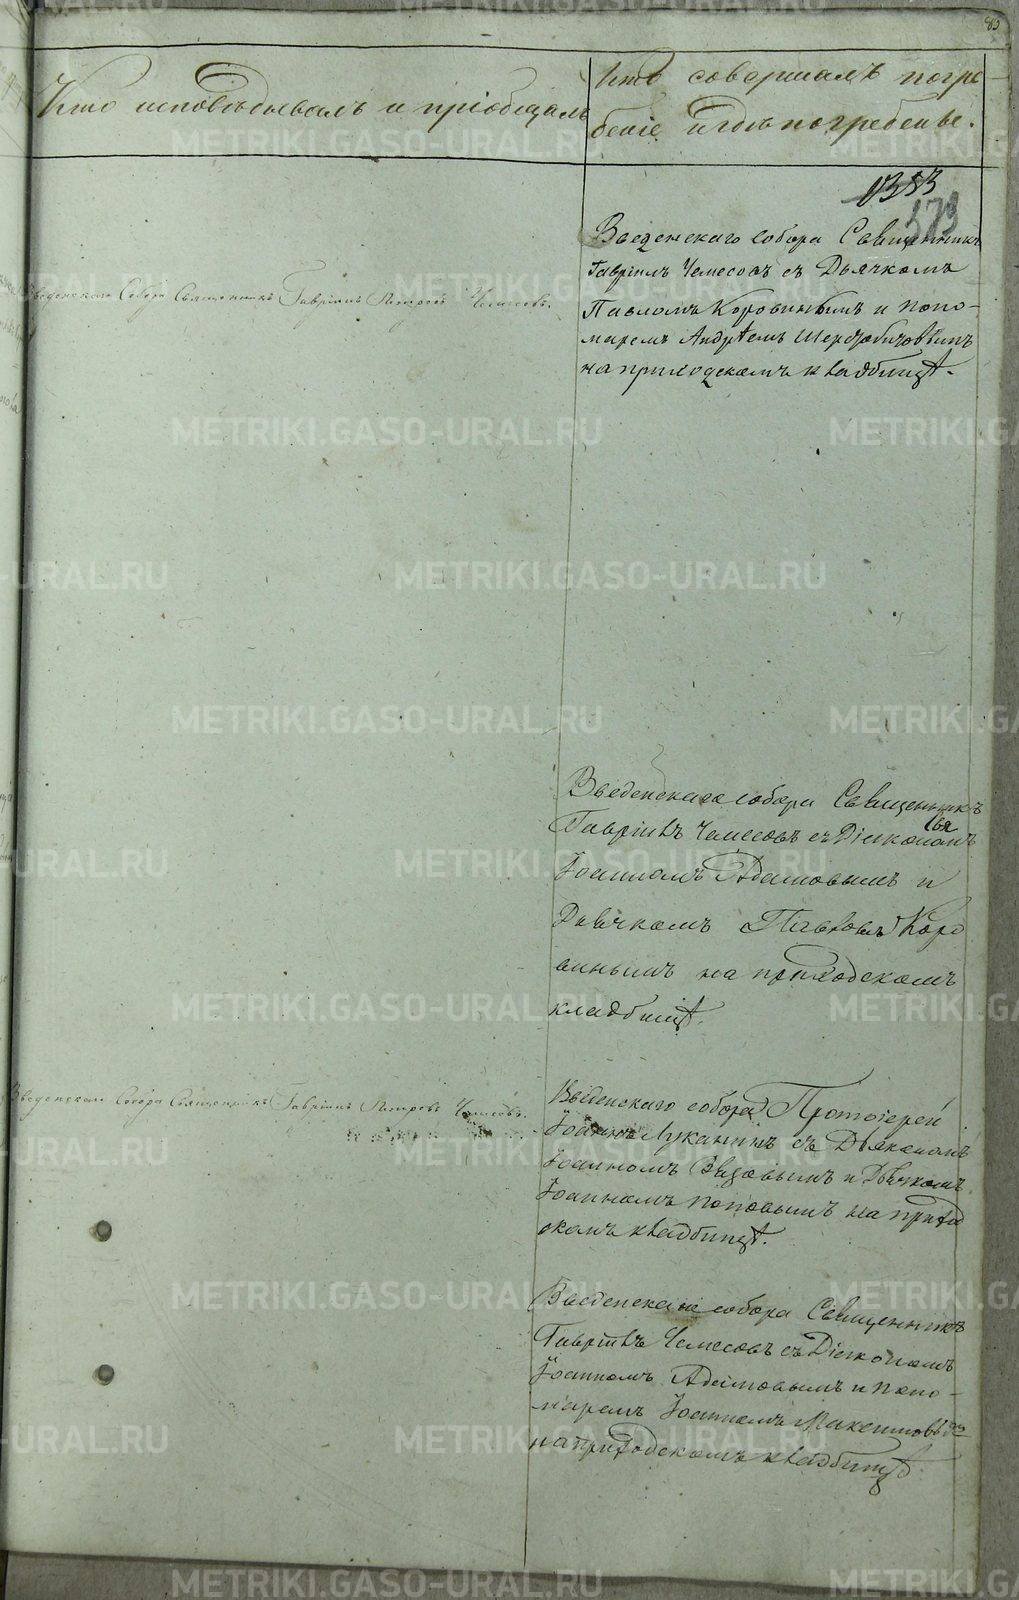 Кто исповѣдывалъ и пріобщалъ
Кто совершалъ погре-
беніе и гдѣ погребены.
373
Введенскаго Собора Священникъ
Гавріилъ Чемесовъ съ Дьячкомъ
Павломъ Коровинымъ и поно-
маремъ Андреемъ
на приходскомъ кладбищѣ.
Введенскаго Собора Священникъ Гавріилъ Петровъ Чемесовъ.
Введенскаго собора Священникъ
Гавріилъ Чемесовъ съ Діакономъ
Іоанномъ Адамовымъ и
Дьячкомъ Павломъ Коро
винымъ на приходскомъ
кладбищѣ.
Введенскаго Собора Священникъ Гавріилъ Петровъ Чемесовъ.
Введенскаго собора Протоіерей
Іоаннъ Луканинъ съ Дьякономъ
Іоанномъ и Дьячкомъ
Іоанномъ Поповымъ на прихо
скомъ кладбищѣ.
Введенскаго собора Священникъ
Гавріилъ Чемесовъ съ Діакономъ
Іоанномъ Адамовымъ и поно-
маремъ Іоанномъ
на приходскомъ кладбищѣ
METRIKI.GASO-URAL.RU